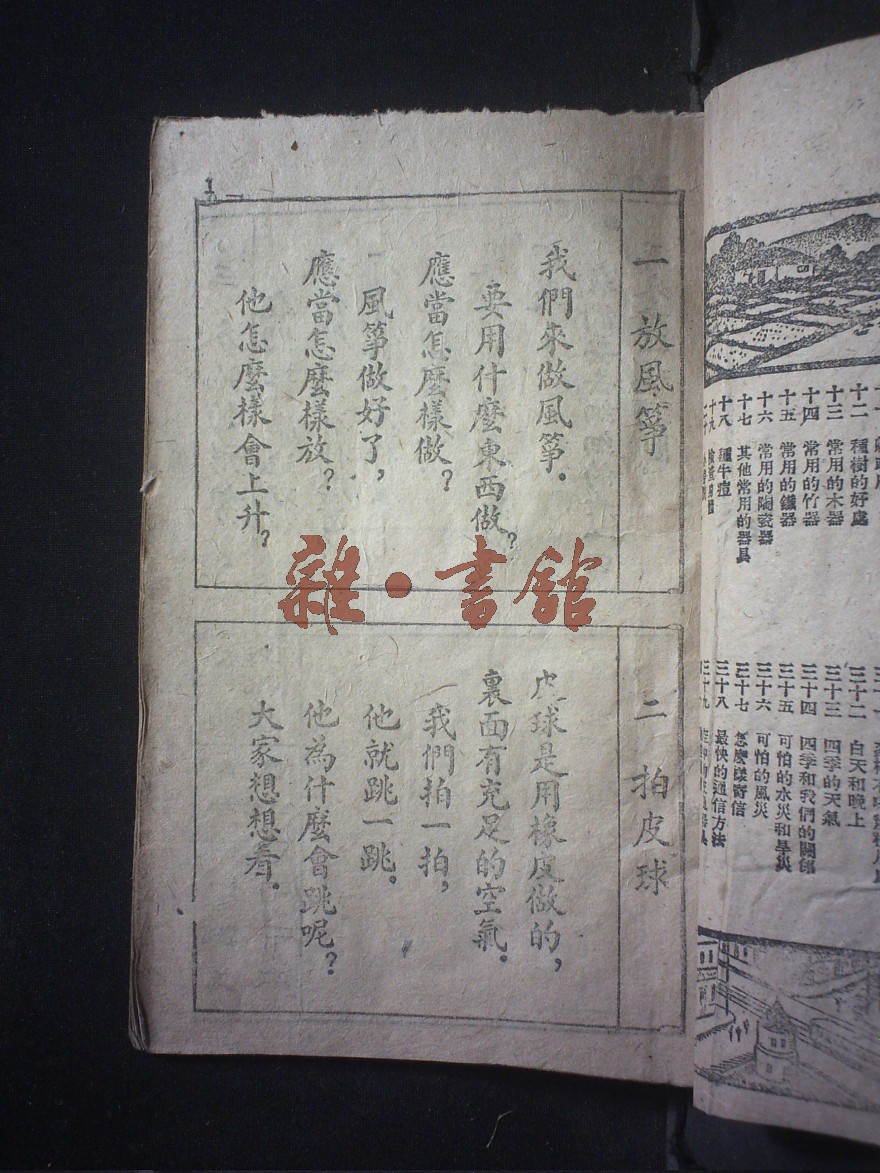 十二 種樹的好處
十三 常用的木器
十四 常用的竹器
十五 常用的鐵器
十六 常用的陶瓷器
十七 其他常用的器具
十八 種牛痘
十九
三十二 白天和晚上
三十三 四季的天氣
三十四 四季和我們的關係
三十五 可怕的水災和旱災
三十六 可怕的風災
三十七 怎麼樣寄信
三十八 最快的通信方法
三十九
一 放風箏
我們來做風箏.
要用什麼東西做?
應當怎麼樣做?
風箏做好了,
應當怎麼樣放?
他怎麼樣會上升?
二 拍皮球
皮球是用橡皮做的,
裏面有充足的空氣.
我們拍一拍,
他就跳一跳.
他為什麼會跳呢?
大家想想看.
1
雜•書館